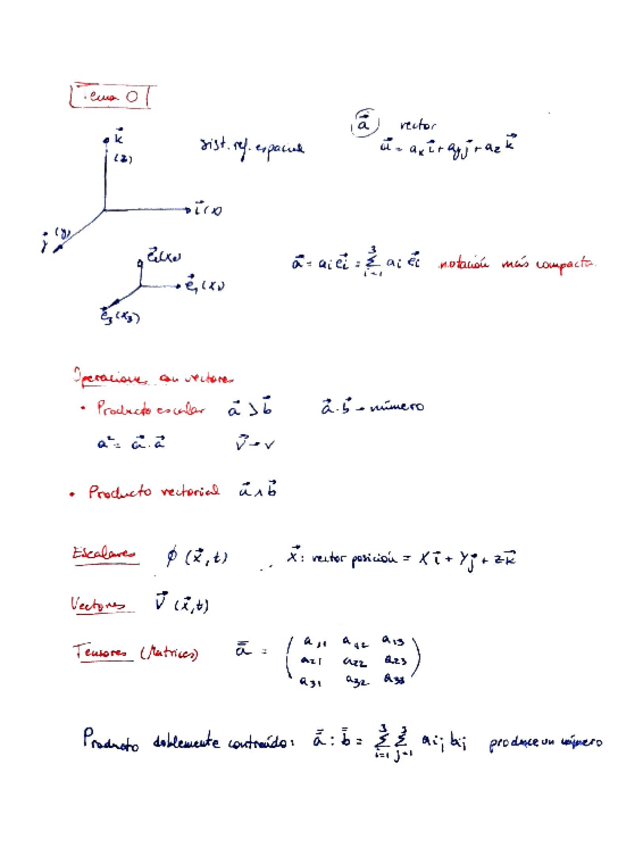 Tema 0
$\vec{a}$ vector
$\vec{a} = a_x\vec{i} + a_y\vec{j} + a_z\vec{k}$
$\vec{k}$ (z)
sist. ref. espacial
$\vec{i}$ (x)
$\vec{j}$ (y)
$\vec{a} = a_i\vec{e}_i = \sum_{i=1}^{3} a_i\vec{e}_i$ notación más compacta.
$\vec{e}_1$ (x₁)
$\vec{e}_3$ (x₃)
Operaciones con vectores
• Producto escalar $\vec{a}$ $\vec{b}$ $\vec{a}\cdot\vec{b}$ → número
$a^2 = \vec{a}\cdot\vec{a}$ $\vec{v}$ → v
• Producto vectorial $\vec{a} \wedge \vec{b}$
Escalares $\phi(\vec{x},t)$ $\vec{x}$: vector posición = $x\vec{i} + y\vec{j} + z\vec{k}$
Vectores $\vec{v}(\vec{x},t)$
Tensores (Matrices) $\bar{\bar{a}} = \begin{pmatrix} a_{11} & a_{12} & a_{13} \\ a_{21} & a_{22} & a_{23} \\ a_{31} & a_{32} & a_{33} \end{pmatrix}$
Producto doblemente contraído: $\bar{\bar{a}} : \bar{\bar{b}} = \sum_{i=1}^{3}\sum_{j=1}^{3} a_{ij} b_{ij}$ produce un número